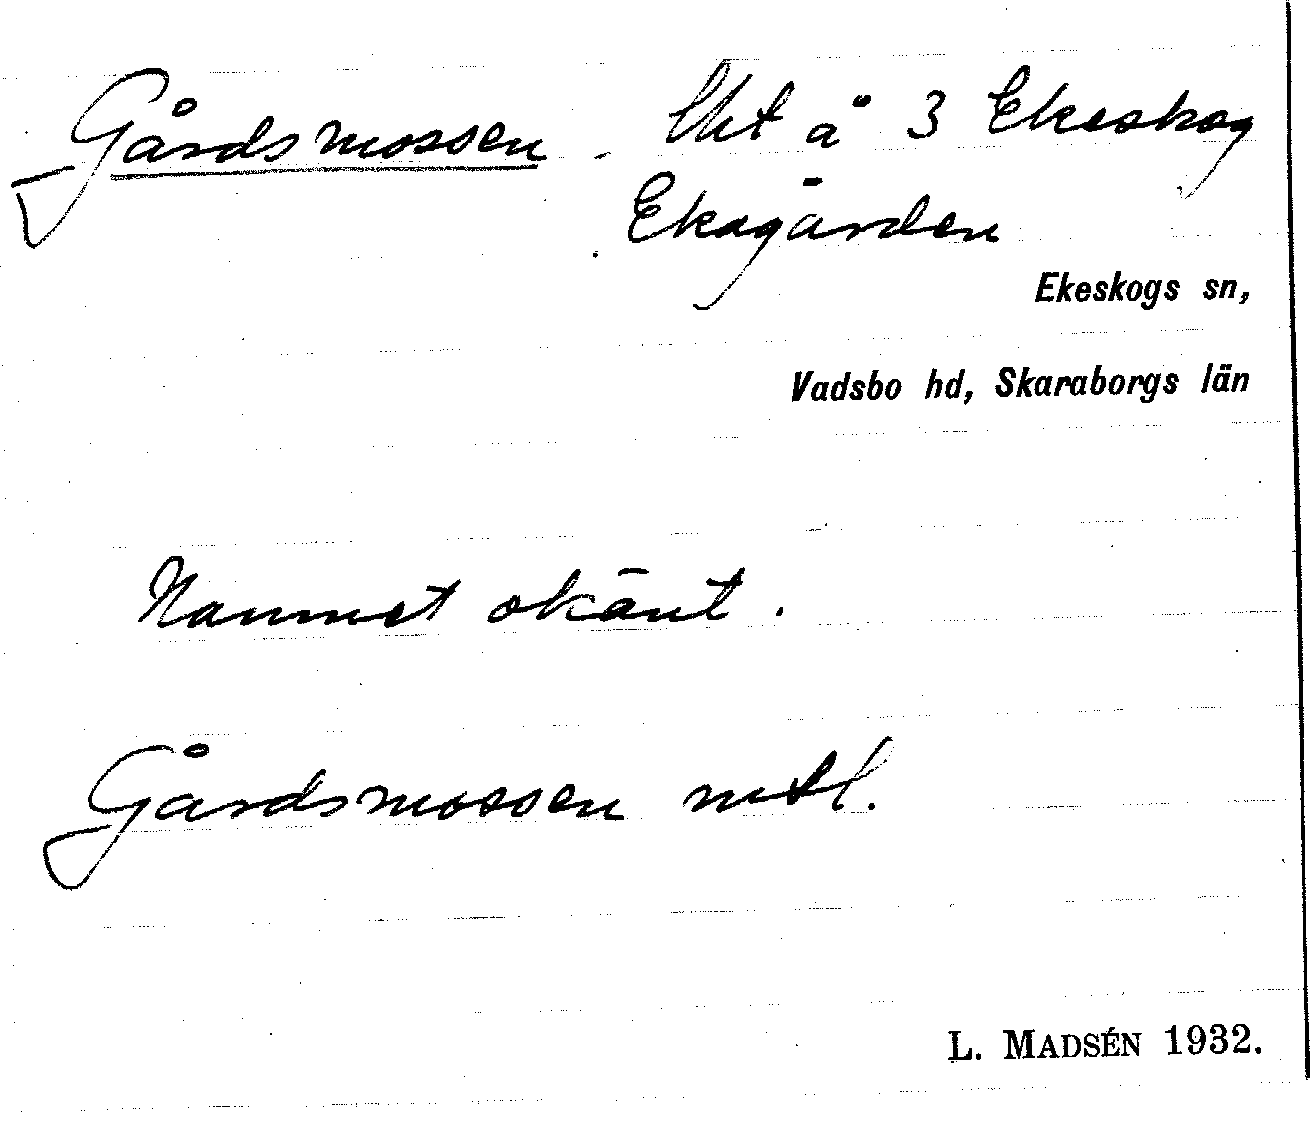 Gårdsmossen. Utet å 3 Ekeskog
Ekagården
Ekeskogs sn,
Vadsbo hd, Skaraborgs län
Namnet okänt.
Gårdsmossen mtl.
L. MADSÉN 1932.